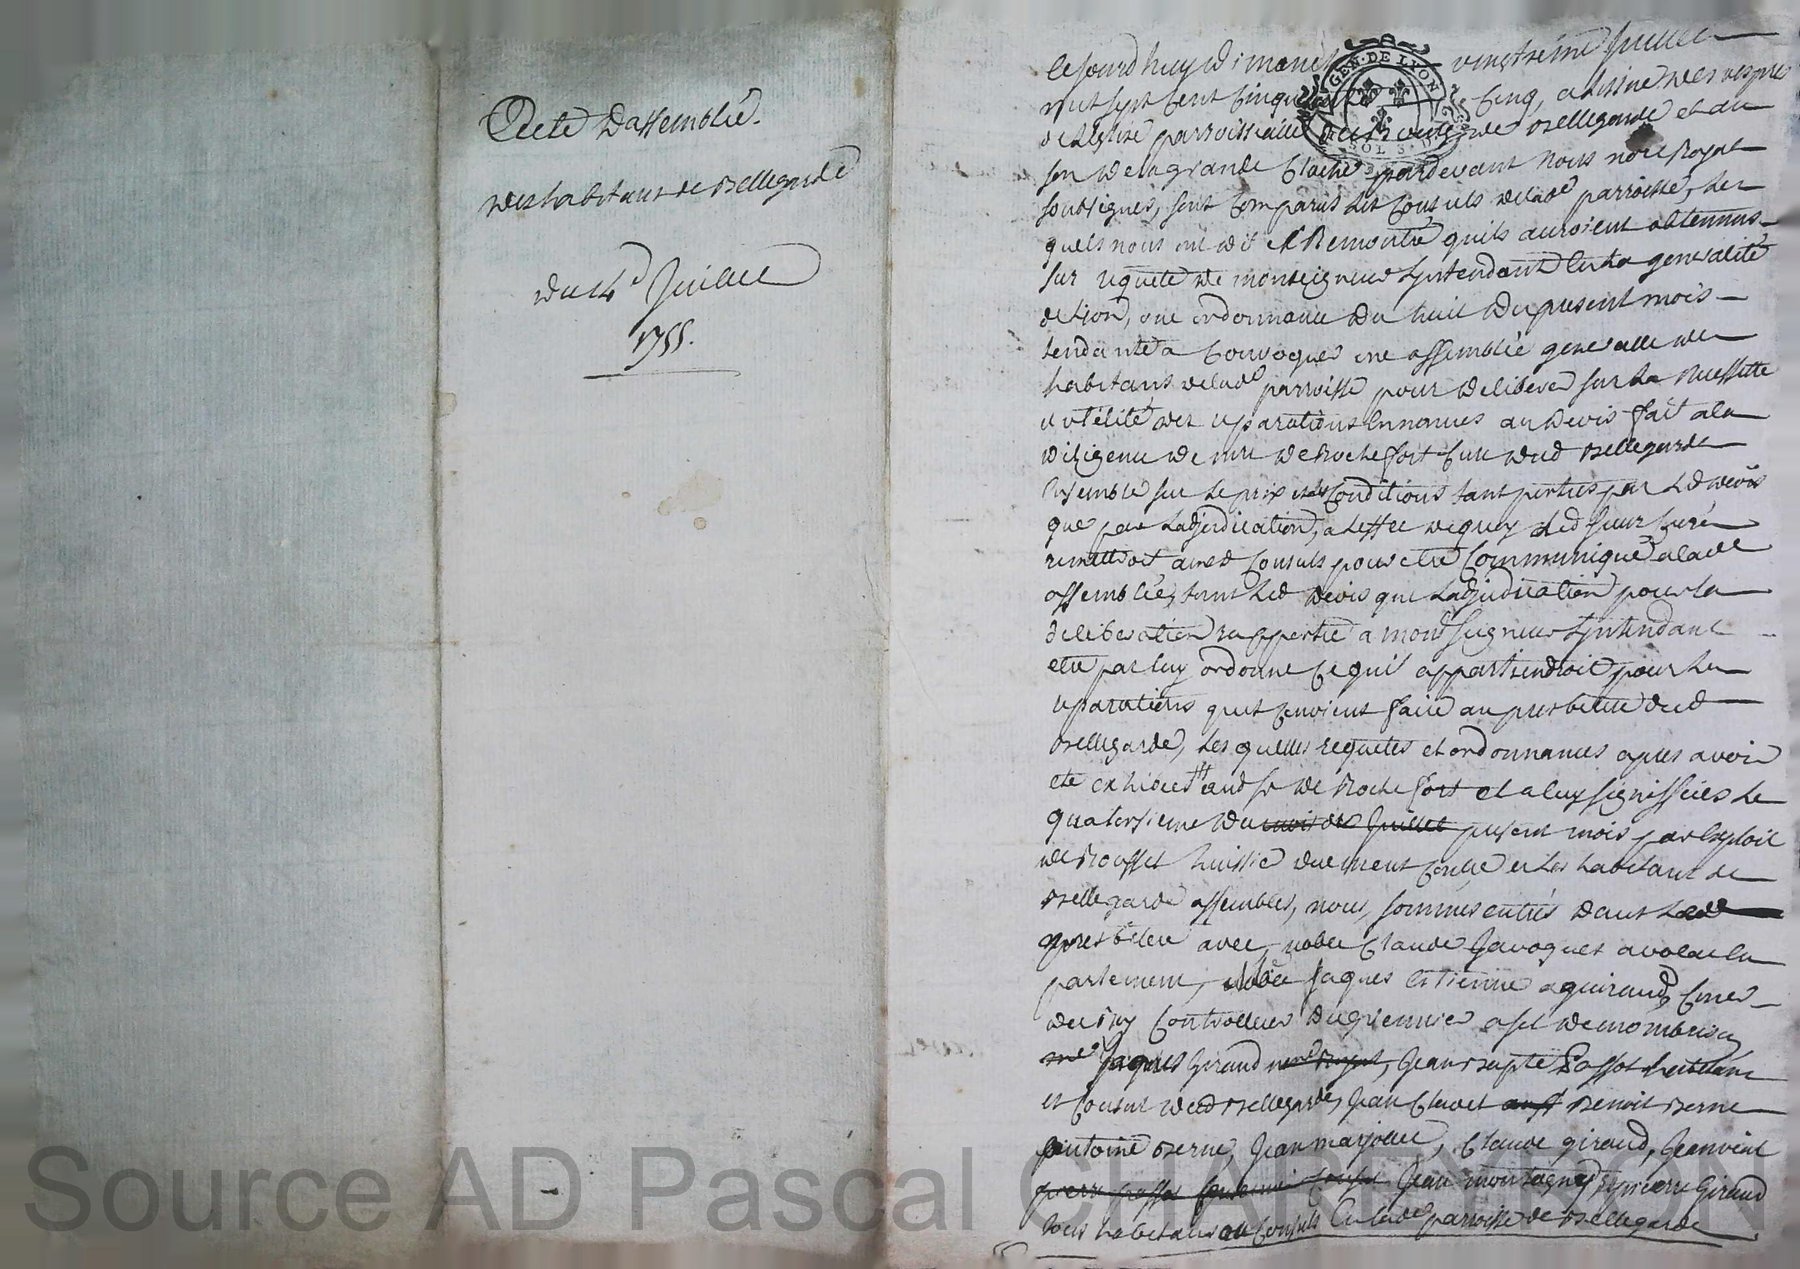 Acte Dassemblée
des habitans de Bellegarde
du 14e Juillet
1755.
GEN. DE LYON
SOL 3. D
cejourd'huy dimanche vingtième Juillet
mil sept cent cinquante cinq, a lissüe des vespres
de leglise parroissialle de Bellegarde et au
son de la grande cloche pardevant nous nore Royal
soussignés, sont comparus les consuls de lade parroisse, les
quels nous ont dit et Remontré quils auroient obtenus
sur requete de monseigneur Lyntendant en la generalité
de Lion, une ordonnance du huit du present mois
tendante a convoquer une assemblée generalle des
habitans de lade parroisse pour deliberer sur la necessitté
et utélité des reparations ennoncés au devis fait a la
diligence de mre de Rochefort curé dud Bellegarde
ensemble sur le prix et les conditions tant portés par led devis
que par ladjudication, a leffet de quoy led sieur curé
remettroit auxd consuls pour etre communiqué a lade
assemblée, tant led devis que ladjudication pour la
deliberation rapportée a monseigneur Lyntendant
etre par luy ordonné ce quil appartiendroit pour les
reparations quil convient faire au presbitere dud
Bellegarde, les quelles requetes et ordonnances apres avoir
été exhibées aud sr de Rochefort et a luy signiffiées le
quatorsieme du mois de Juillet present mois par exploit
de Rousset huissier duement conllé et les habitans de
Bellegarde assemblés, nous sommes entrés dans led
presbitere avec noble Claude Javoques avocat en
parlement, noble Jaques Estienne aguiraud, coner
du Roy controlleur du grennier a sel de montbrison
me Jaques Giraud nore Royal, Jean Bapte
et consul dud Bellegarde, Jean Clavel Benoit Berne
antoine Berne, Jean marjollet, Claude giraud, Jean
pierre Jean montagne, pierre Giraud
tous habitans ou consuls en lade parroisse de Bellegarde
Source AD Pascal CHAMBON